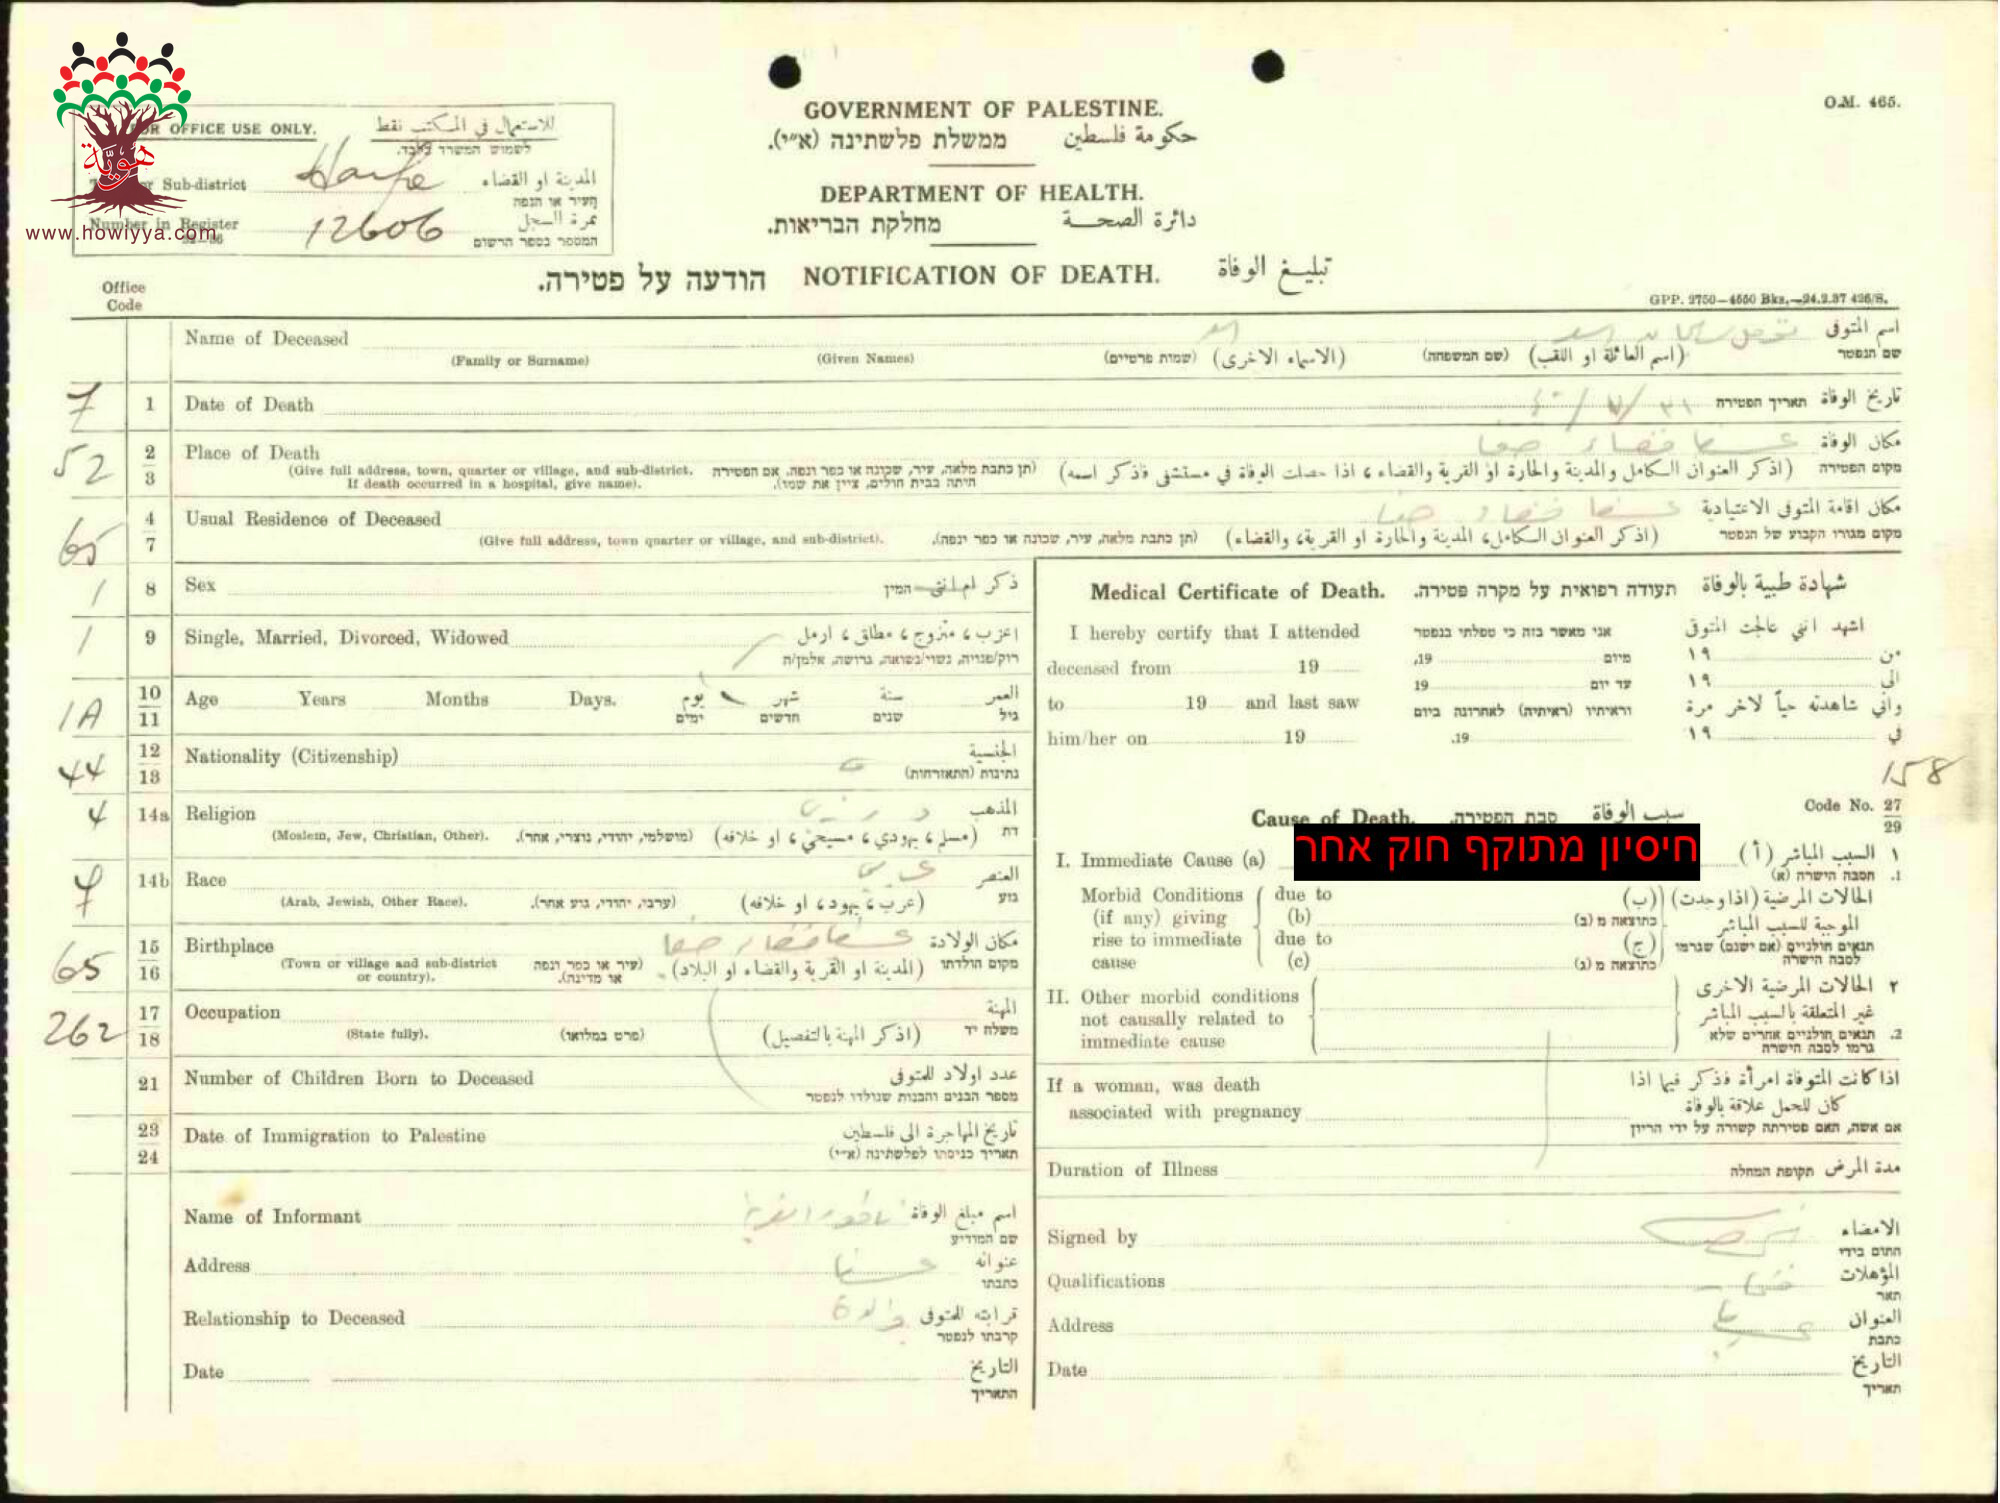 هويّة
www.howiyya.com
FOR OFFICE USE ONLY. للاستعمال في المكتب نقط
לשמוש המשרד בלבד.
Sub-district Haifa المدينة او القضاء
העיר או הנפה
Number in Register 12606 نمرة السجل
המספר בספר הרשום
O.M. 465.
GOVERNMENT OF PALESTINE.
ממשלת פלשתינה (א״י). حكومة فلسطين
DEPARTMENT OF HEALTH.
מחלקת הבריאות. دائرة الصحة
הודעה על פטירה. NOTIFICATION OF DEATH. تبليغ الوفاة
GPP. 2750—4550 Bks.—24.2.37 426/S.
Office
Code
Name of Deceased اسم المتوفى
(Family or Surname) (Given Names) (שמות פרטיים) (الاسماء الاخرى) (שם המשפחה) (اسم العائلة او اللقب) שם הנפטר
7 1 Date of Death תאריך הפטירה تاريخ الوفاة
52 2 3 Place of Death عسفيا قضاء حيفا مكان الوفاة
(Give full address, town, quarter or village, and sub-district. (תן כתבת מלאה, עיר, שכונה או כפר ונפה. אם הפטירה (اذكر العنوان الكامل والمدينة والحارة او القرية والقضاء ، اذا حصلت الوفاة في مستشفى فاذكر اسمه) מקום הפטירה
If death occurred in a hospital, give name). היתה בבית חולים, ציין את שמו).
65 4 7 Usual Residence of Deceased عسفيا قضاء حيفا مكان اقامة المتوفى الاعتيادية
(Give full address, town quarter or village, and sub-district). (תן כתבת מלאה, עיר, שכונה או כפר ונפה). (اذكر العنوان الكامل، المدينة والحارة او القرية، والقضاء) מקום מגורו הקבוע של הנפטר
1 8 Sex המין ذكر ام انثى
1 9 Single, Married, Divorced, Widowed اعزب ، متزوج ، مطلق ، ارمل
רוק/פנויה, נשוי/נשואה, גרושה, אלמן/ה
1A 10 11 Age Years Months Days. يوم شهر سنة العمر
ימים חדשים שנים גיל
44 12 13 Nationality (Citizenship) الجنسية
נתינות (התאזרחות)
4 14a Religion درزي المذهب
(Moslem, Jew, Christian, Other). (מושלמי, יהודי, נוצרי, אחר). (مسلم ، يهودي ، مسيحي ، او خلافه) דת
7 14b Race عربي العنصر
(Arab, Jewish, Other Race). (ערבי, יהודי, גזע אחר). (عرب ، يهود ، او خلافه) גזע
65 15 16 Birthplace عسفيا قضاء حيفا مكان الولادة
(Town or village and sub-district or country). (עיר או כפר ונפה או מדינה). (المدينة او القرية والقضاء او البلاد) מקום הולדתו
262 17 18 Occupation المهنة
(State fully). (פרט במלואו) (اذكر المهنة بالتفصيل) משלח יד
21 Number of Children Born to Deceased عدد اولاد للمتوفى
מספר הבנים והבנות שנולדו לנפטר
23 24 Date of Immigration to Palestine تاريخ المهاجرة الى فلسطين
תאריך כניסתו לפלשתינה (א״י)
Name of Informant اسم مبلغ الوفاة
שם המודיע
Address عسفيا عنوانه
כתבתו
Relationship to Deceased والدة قرابته للمتوفى
קרבתו לנפטר
Date التاريخ
התאריך
Medical Certificate of Death. תעודה רפואית על מקרה פטירה. شهادة طبية بالوفاة
I hereby certify that I attended אני מאשר בזה כי טפלתי בנפטר اشهد انني عالجت المتوفى
deceased from 19 מיום 19, من ١٩
to 19 and last saw עד יום 19 الى ١٩
וראיתיו (ראיתיה) לאחרונה ביום واني شاهدته حياً لاخر مرة
him/her on 19 19. في ١٩
158
Cause of Death. סבת הפטירה. سبب الوفاة Code No. 27 29
I. Immediate Cause (a) חיסיון מתוקף חוק אחר ١ السبب المباشر (أ)
1. הסבה הישרה (א)
Morbid Conditions due to الحالات المرضية (اذا وجدت) (ب)
(if any) giving (b) כתוצאה מ (ב) الموجبة للسبب المباشر
rise to immediate due to (ج) תנאים חולניים (אם ישנם) שגרמו
cause (c) כתוצאה מ (ג) לסבה הישרה
II. Other morbid conditions ٢ الحالات المرضية الاخرى
not causally related to غير المتعلقة بالسبب المباشر
immediate cause 2. תנאים חולניים אחרים שלא
גרמו לסבה הישרה
If a woman, was death اذا كانت المتوفاة امرأة فذكر فيما اذا
associated with pregnancy كان للحمل علاقة بالوفاة
אם אשה, האם פטירתה קשורה על ידי הריון
Duration of Illness תקופת המחלה مدة المرض
Signed by الامضاء
החתום בידי
Qualifications المؤهلات
תאר
Address العنوان
כתבת
Date التاريخ
תאריך